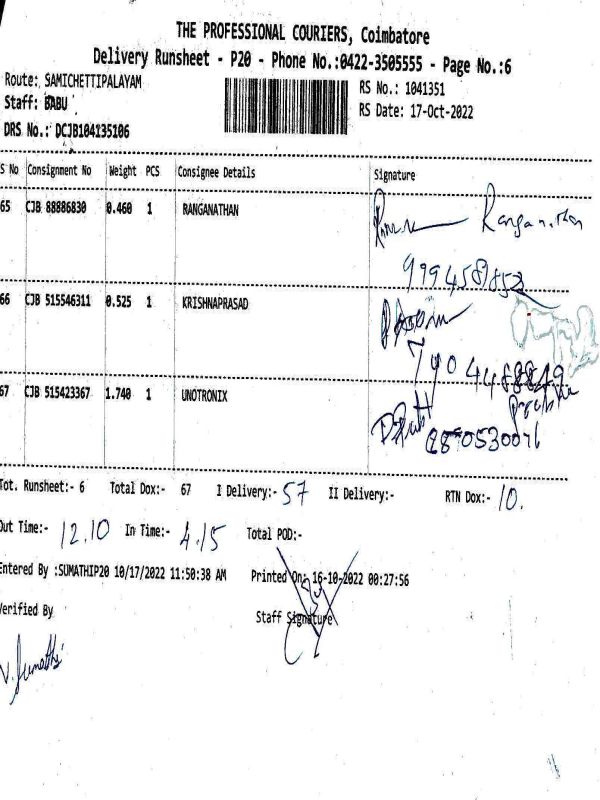 THE PROFESSIONAL COURIERS, Coimbatore
Delivery Runsheet - P20 - Phone No.:0422-3505555 - Page No.:6
Route: SAMICHETTIPALAYAM
RS No.: 1041351
Staff: BABU
RS Date: 17-Oct-2022
DRS No.: DCJB104135106
S No Consignment No Weight PCS Consignee Details Signature
65 CJB 88886830 0.460 1 RANGANATHAN Ranganathan
999458853
66 CJB 515546311 0.525 1 KRISHNAPRASAD
67 CJB 515423367 1.740 1 UNOTRONIX
Tot. Runsheet:- 6 Total Dox:- 67 I Delivery:- 57 II Delivery:- RTN Dox:- 10.
Out Time:- 12.10 In Time:- 4.15 Total POD:-
Entered By :SUMATHIP20 10/17/2022 11:50:38 AM Printed On: 16-10-2022 00:27:56
Verified By Staff Signature
V. Sumathi